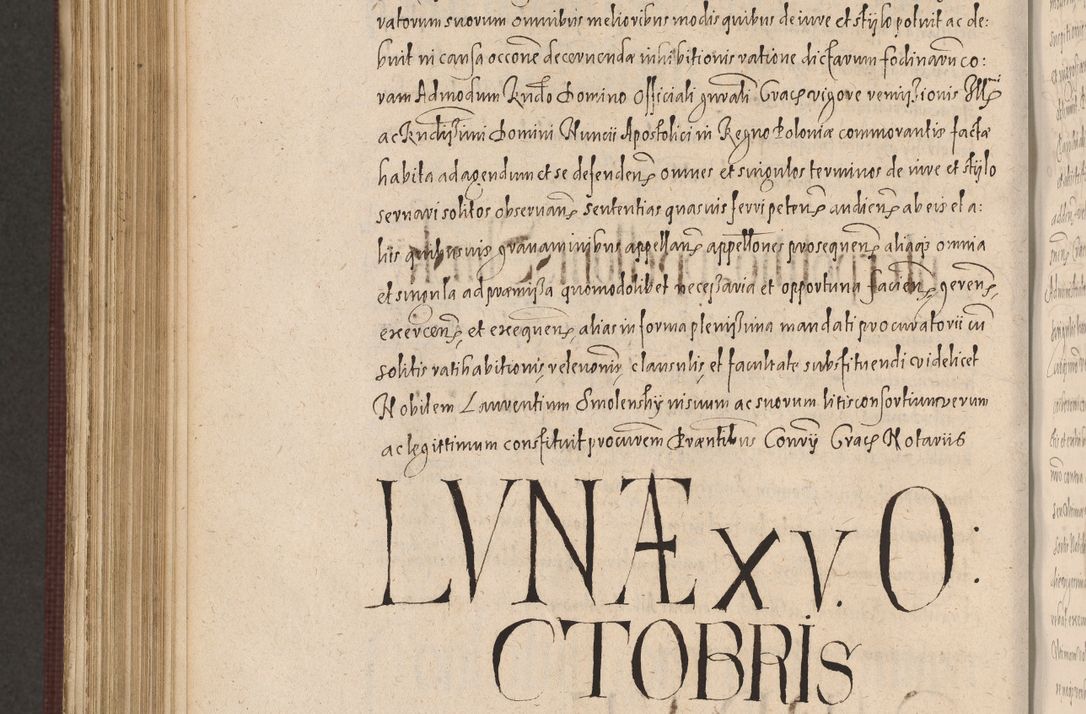 vatorum suorum omnibus melioribus modis quibus de iure et stylo potuit ac de:
buit in causa occone decernendæ inhibitionis ratione dictarum fodinarum co:
ram Admodum Rndo Domino Officiali gnrali Crac vigore remissionis Illmi
ac Rndissimi Domini Nuncii Apostolici in Regno Poloniæ commorantis factæ
habita ad agendum et se defenden omnes et singulos terminos de iure et stylo
servari solitos observan sententias quasvis ferri peten audien ab eis et a:
liis quibusvis gravaminibus appellan appellones prosequen aliaqs omnia
et singula ad præmissa quomodolibet necessaria et opportuna facien geren
exercen et exequen alias in forma plenissima mandati procuratorii cu
solitis ratihabitionis relevonis clausulis et facultate substituendi videlicet
Nobilem Laurentium Smolenskij visuum ac suorum litis consortium verum
ac legittimum constituit procurem Præntibus Convry Crac Notariis
LVNÆ XV. O:
CTOBRIS